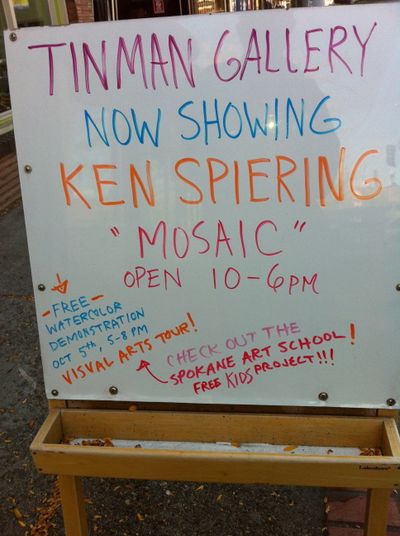 TINMAN GALLERY
NOW SHOWING
KEN SPIERING
"MOSAIC"
OPEN 10-6PM
-FREE-
WATERCOLOR
DEMONSTRATION
OCT 5th, 5-8 PM
VISUAL ARTS TOUR!
CHECK OUT THE
SPOKANE ART SCHOOL!
FREE KIDS PROJECT!!!
Lakeshore